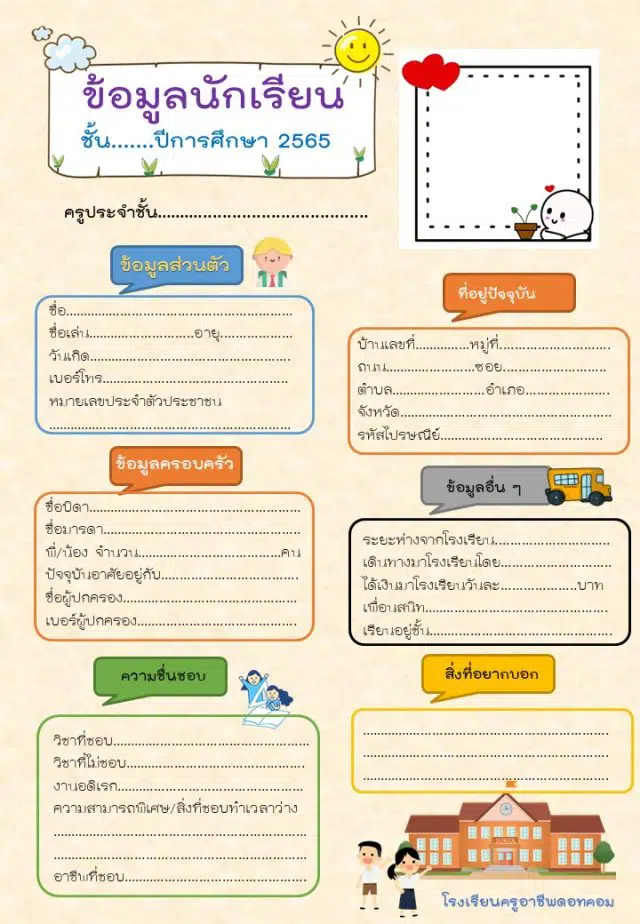 ข้อมูลนักเรียน
ชั้น.......ปีการศึกษา 2565
ครูประจำชั้น..........................................
ข้อมูลส่วนตัว
ชื่อ..................................................
ชื่อเล่น........................อายุ................
วันเกิด.............................................
เบอร์โทร.........................................
หมายเลขประจำตัวประชาชน
......................................................
ข้อมูลครอบครัว
ชื่อบิดา...............................................
ชื่อมารดา............................................
พี่/น้อง จำนวน................................คน
ปัจจุบันอาศัยอยู่กับ...............................
ชื่อผู้ปกครอง.......................................
เบอร์ผู้ปกครอง....................................
ความชื่นชอบ
วิชาที่ชอบ............................................
วิชาที่ไม่ชอบ........................................
งานอดิเรก...........................................
ความสามารถพิเศษ/สิ่งที่ชอบทำเวลาว่าง
.........................................................
.........................................................
อาชีพที่ชอบ.........................................
ที่อยู่ปัจจุบัน
บ้านเลขที่............หมู่ที่.........................
ถนน....................ซอย.......................
ตำบล.....................อำเภอ...................
จังหวัด...............................................
รหัสไปรษณีย์.....................................
ข้อมูลอื่น ๆ
ระยะห่างจากโรงเรียน..........................
เดินทางมาโรงเรียนโดย.........................
ได้เงินมาโรงเรียนวันละ.................บาท
เพื่อนสนิท.........................................
เรียนอยู่ชั้น.........................................
สิ่งที่อยากบอก
.......................................................
.......................................................
.......................................................
SCHOOL
โรงเรียนครูอาชีพดอทคอม